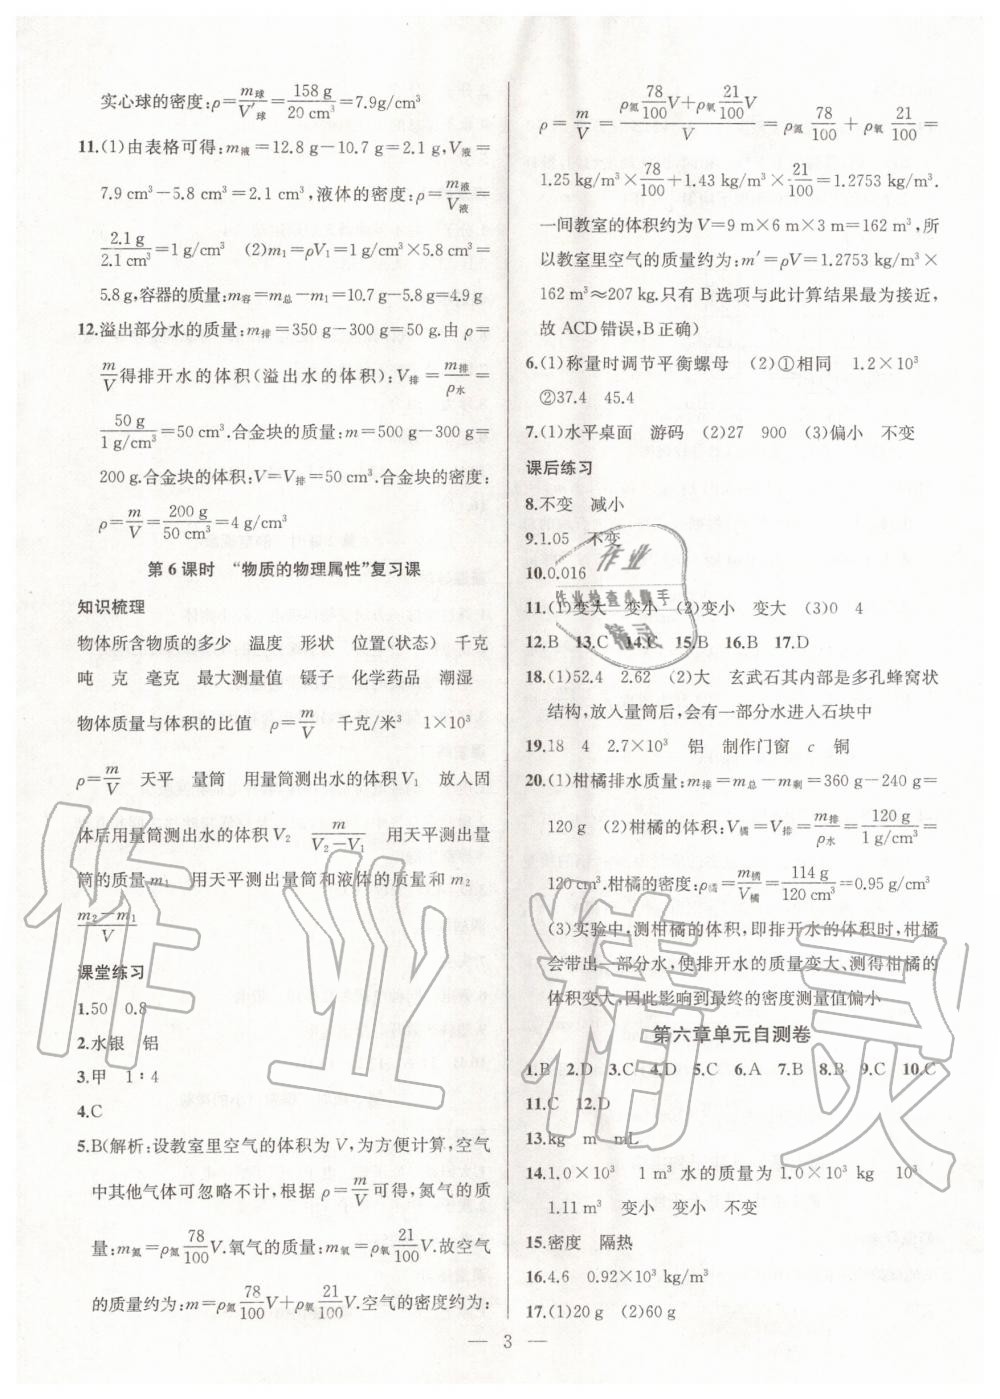 实心球的密度:ρ=m球/V′球=158 g/20 cm³=7.9g/cm³
11.(1)由表格可得:m液=12.8 g−10.7 g=2.1 g,V液=
7.9 cm³−5.8 cm³=2.1 cm³,液体的密度:ρ=m液/V液=
2.1 g/2.1 cm³=1 g/cm³ (2)m₁=ρV₁=1 g/cm³×5.8 cm³=
5.8 g,容器的质量:m容=m总−m₁=10.7 g−5.8 g=4.9 g
12.溢出部分水的质量:m排=350 g−300 g=50 g.由 ρ=
m/V得排开水的体积(溢出水的体积):V排=m排/ρ水=
50 g/1 g/cm³=50 cm³.合金块的质量:m=500 g−300 g=
200 g.合金块的体积:V=V排=50 cm³.合金块的密度:
ρ=m/V=200 g/50 cm³=4 g/cm³
第 6 课时 “物质的物理属性”复习课
知识梳理
物体所含物质的多少 温度 形状 位置(状态) 千克
吨 克 毫克 最大测量值 镊子 化学药品 潮湿
物体质量与体积的比值 ρ=m/V 千克/米³ 1×10³
ρ=m/V 天平 量筒 用量筒测出水的体积 V₁ 放入固
体后用量筒测出水的体积 V₂ m/V₂−V₁ 用天平测出量
筒的质量 m₁ 用天平测出量筒和液体的质量和 m₂
m₂−m₁/V
课堂练习
1.50 0.8
2.水银 铝
3.甲 1∶4
4.C
5.B(解析:设教室里空气的体积为 V,为方便计算,空气
中其他气体可忽略不计,根据 ρ=m/V可得,氮气的质
量:m氮=ρ氮78/100V.氧气的质量:m氧=ρ氧21/100V.故空气
的质量约为:m=ρ氮78/100V+ρ氧21/100V.空气的密度约为:
ρ=m/V=ρ氮78/100V+ρ氧21/100V/V=ρ氮 78/100+ρ氧 21/100=
1.25 kg/m³×78/100+1.43 kg/m³×21/100=1.2753 kg/m³.
一间教室的体积约为 V=9 m×6 m×3 m=162 m³,所
以教室里空气的质量约为:m′=ρV=1.2753 kg/m³×
162 m³≈207 kg.只有 B 选项与此计算结果最为接近,
故 ACD 错误,B 正确)
6.(1)称量时调节平衡螺母 (2)①相同 1.2×10³
②37.4 45.4
7.(1)水平桌面 游码 (2)27 900 (3)偏小 不变
课后练习
8.不变 减小
9.1.05 不变
10.0.016
11.(1)变大 变小 (2)变小 变大 (3)0 4
12.B 13.C 14.C 15.B 16.B 17.D
18.(1)52.4 2.62 (2)大 玄武石其内部是多孔蜂窝状
结构,放入量筒后,会有一部分水进入石块中
19.18 4 2.7×10³ 铝 制作门窗 c 铜
20.(1)柑橘排水质量:m排=m总−m剩=360 g−240 g=
120 g (2)柑橘的体积:V橘=V排=m排/ρ水=120 g/1 g/cm³=
120 cm³.柑橘的密度:ρ橘=m橘/V橘=114 g/120 cm³=0.95 g/cm³
(3)实验中,测柑橘的体积,即排开水的体积时,柑橘
会带出一部分水,使排开水的质量变大、测得柑橘的
体积变大,因此影响到最终的密度测量值偏小
第六章单元自测卷
1.B 2.D 3.D 4.C 5.C 6.A 7.B 8.B 9.C 10.C
11.C 12.D
13.kg m mL
14.1.0×10³ 1 m³ 水的质量为 1.0×10³ kg 10³
1.11 m³ 变小 变小 不变
15.密度 隔热
16.4.6 0.92×10³ kg/m³
17.(1)20 g (2)60 g
— 3 —
作业
作业检查小助手
精灵
作业精灵